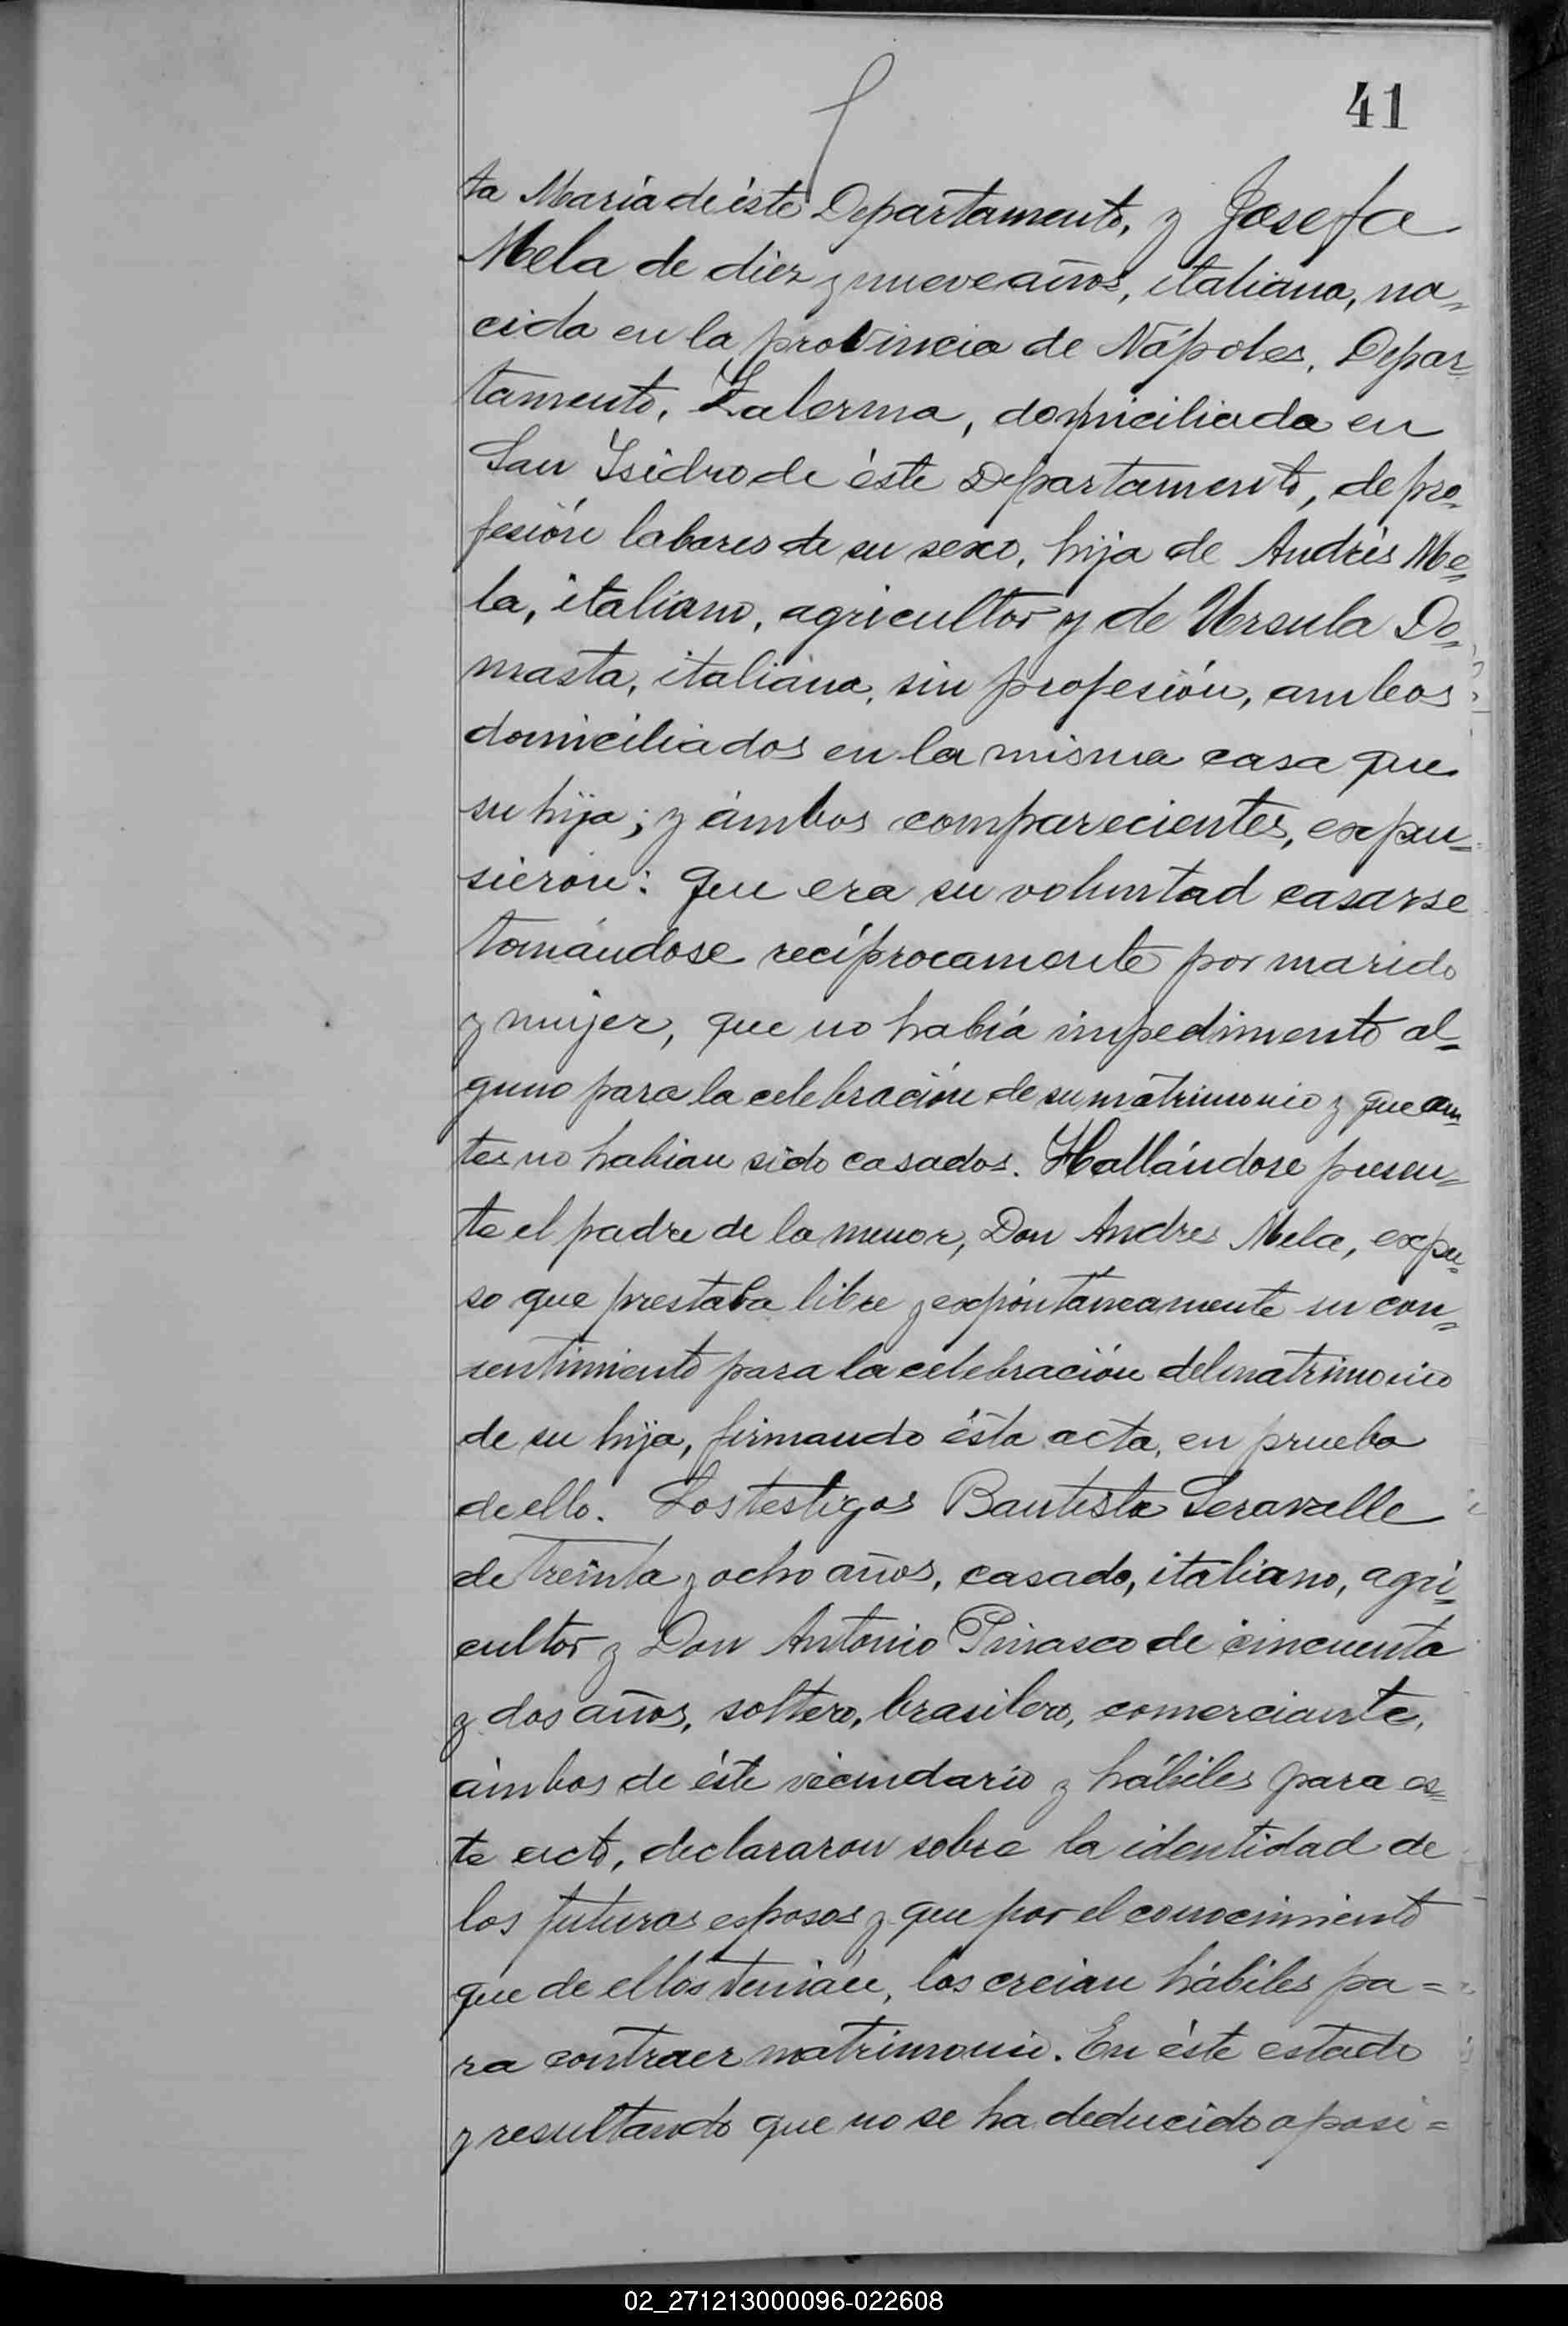 41
ta María de éste Departamento, y Josefa
Mela de diez y nueve años, italiana, na=
cida en la provincia de Nápoles, Depar=
tamento, Zalerma, domiciliada en
San Ysidro de éste Departamento, de pro=
fesión labores de su sexo, hija de Andrés Me=
la, italiano, agricultor y de Ursula Do=
masta, italiana, sin profesión, ambos
domiciliados en la misma casa que
su hija; y ámbos comparecientes, expu=
sieron: que era su voluntad casarse
tomándose recíprocamente por marido
y mujer, que no había impedimento al=
guno para la celebración de su matrimonio y que an=
tes no habian sido casados. Hallándose presen=
te el padre de la menor, Don Andres Mela, expu=
so que prestaba libre y expóntaneamente su con=
sentimiento para la celebración del matrimonio
de su hija, firmando ésta acta, en prueba
de ello. Los testigos Bautista Seravalle
de treinta y ocho años, casado, italiano, agri=
cultor y Don Antonio Pinasco de cincuenta
y dos años, soltero, brasilero, comerciante,
ámbos de éste vecindario y hábiles para es=
te acto, declararon sobre la identidad de
los futuros esposos y que por el conocimiento
que de ellos tenían, los creian hábiles pa=
ra contraer matrimonio. En éste estado
y resultando que no se ha deducido oposi=
02_271213000096-022608